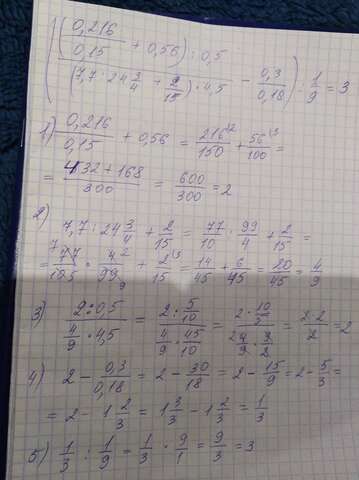 ((0,216/0,15 + 0,56) : 0,5 / (7,7 : 24 3/4 + 2/15) · 4,5 - 0,3/0,18) : 1/9 = 3
1) 0,216/0,15 + 0,56 = 216/150 + 56/100 =
= 432 + 168/300 = 600/300 = 2
2) 7,7 : 24 3/4 + 2/15 = 77/10 : 99/4 + 2/15 =
= 77/105 · 4/99 + 2/15 = 14/45 + 6/45 = 20/45 = 4/9
3) 2 : 0,5 / 4/9 · 4,5 = 2 : 5/10 / 4/9 · 45/10 = 2 · 10/5 / 4/9 · 9/2 = 2 · 2/2 = 2
4) 2 - 0,3/0,18 = 2 - 30/18 = 2 - 15/9 = 2 - 5/3 =
= 2 - 1 2/3 = 1 3/3 - 1 2/3 = 1/3
5) 1/3 : 1/9 = 1/3 · 9/1 = 9/3 = 3